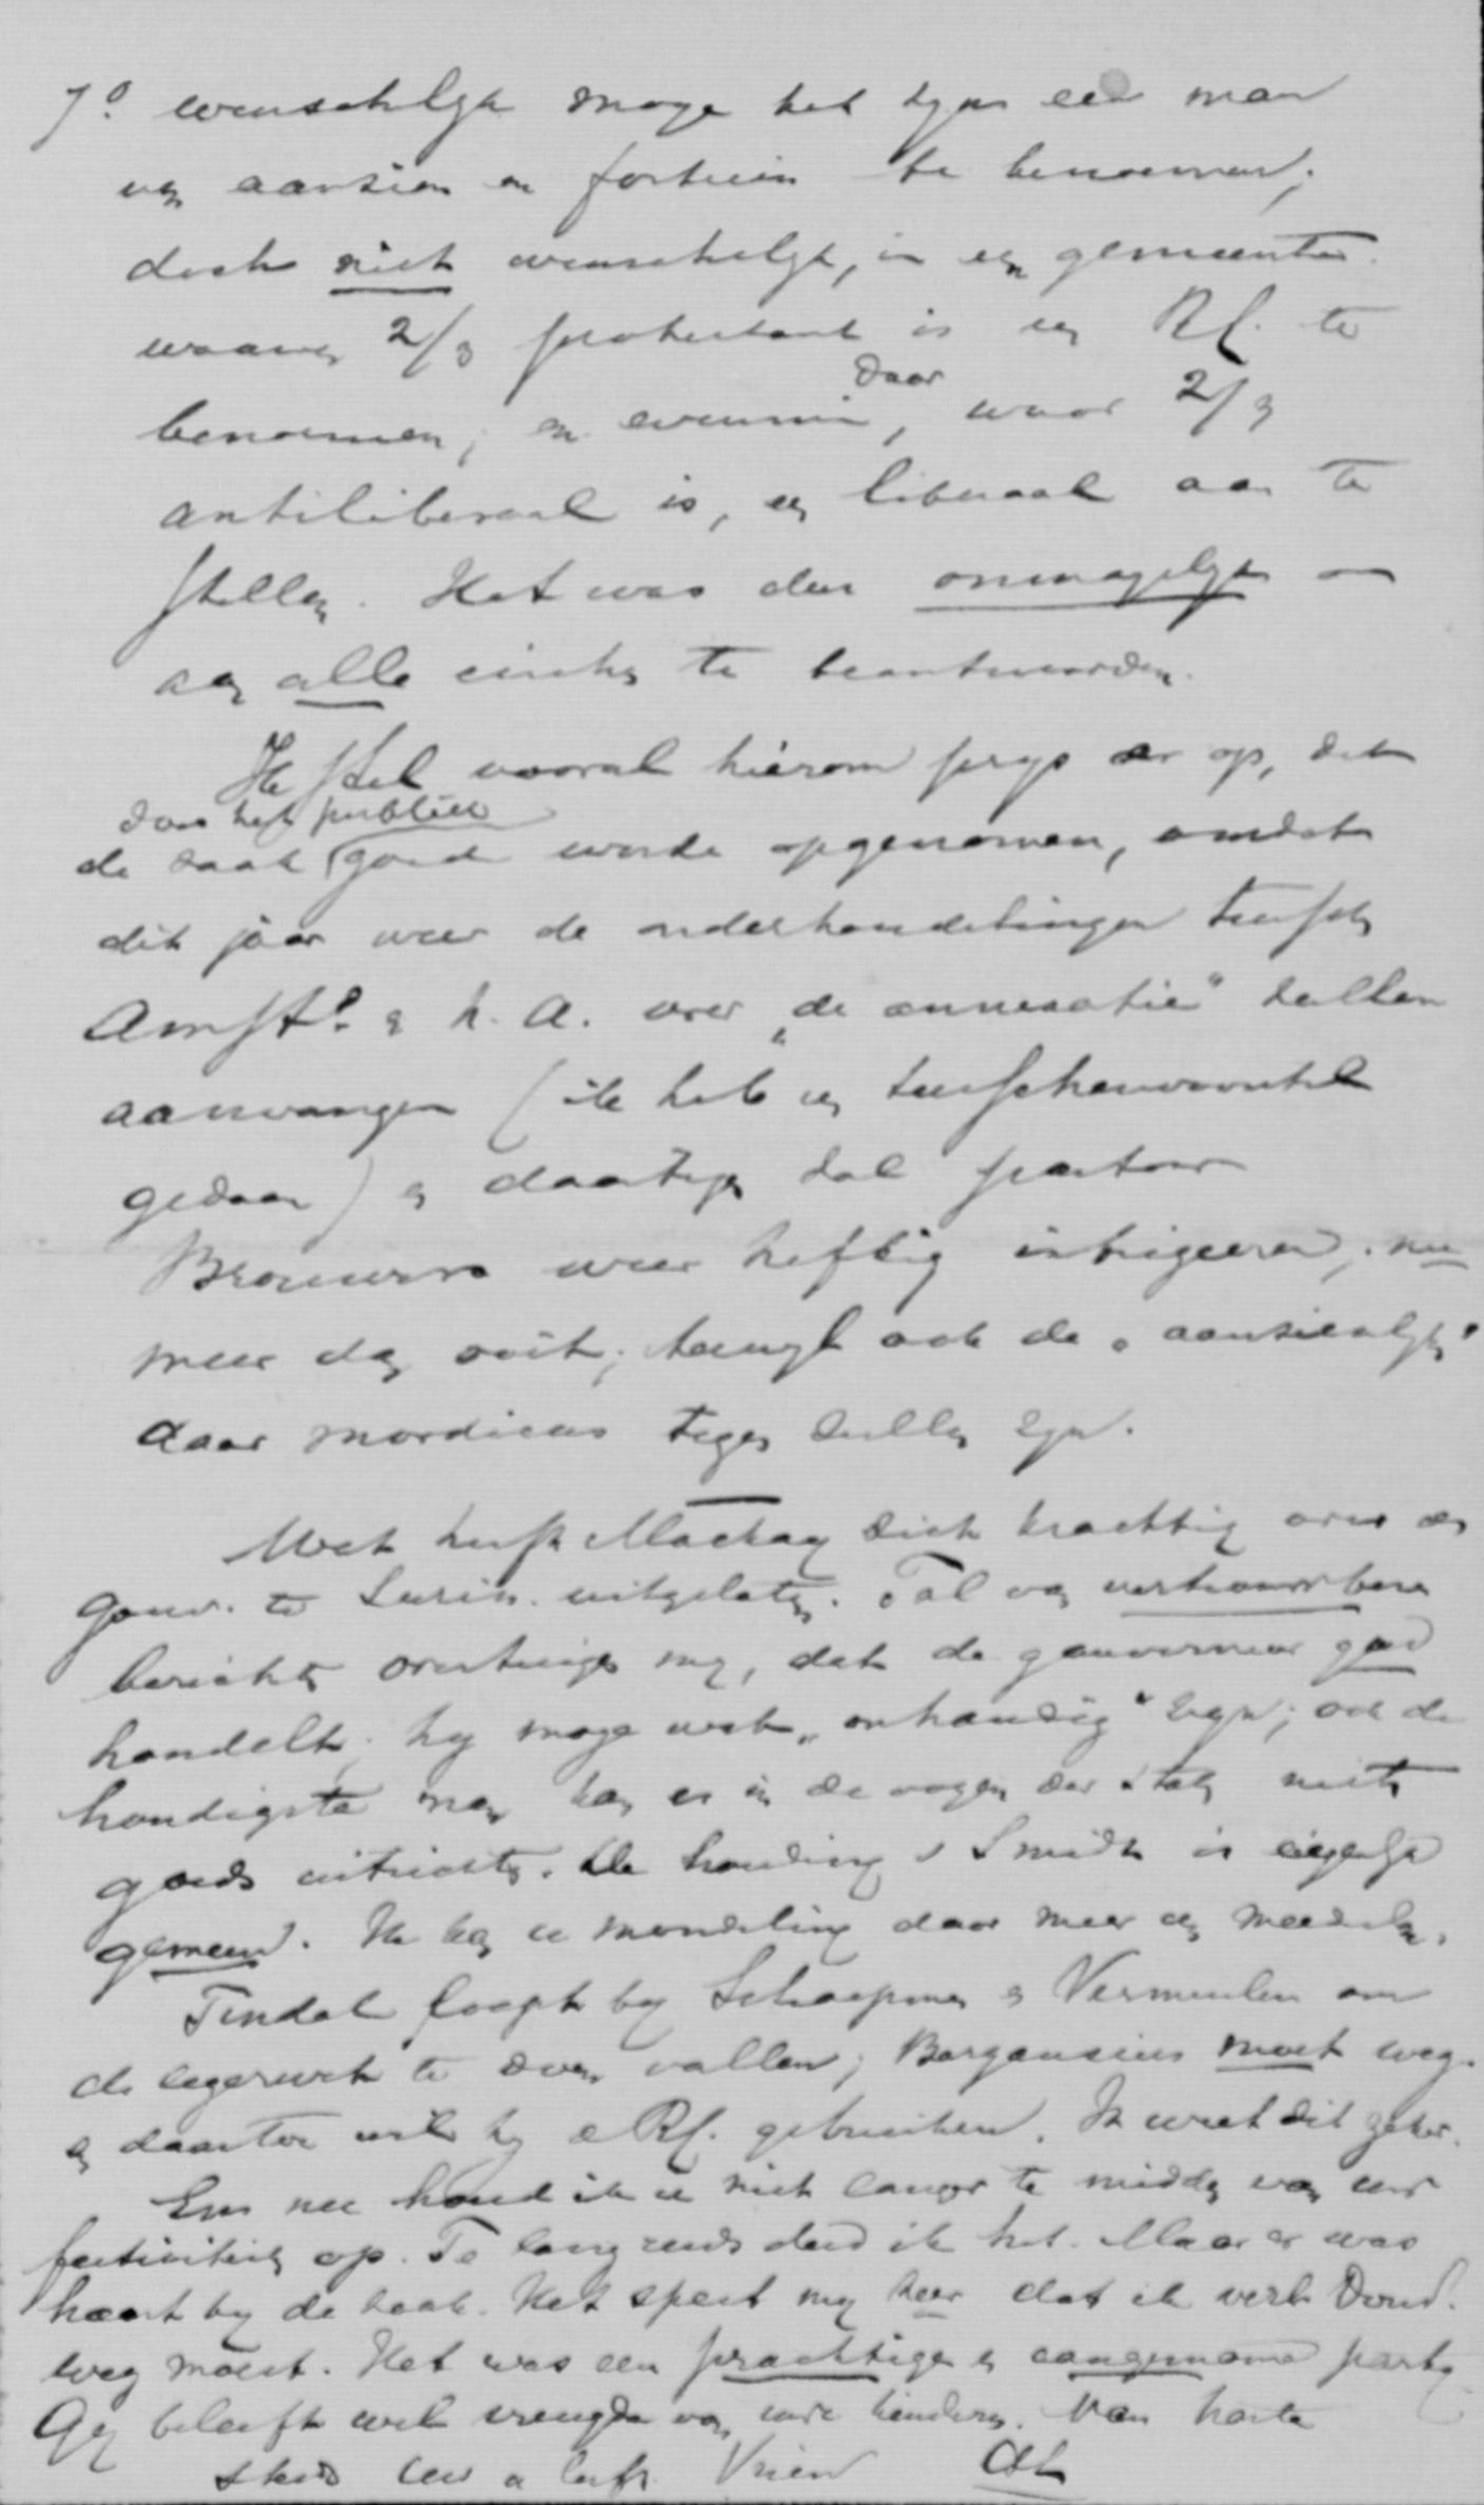 7º wenschelijk moge het zijn een man
van aanzien en fortuin te benoemen;
doch niet wenschelijk, in een gemeente
waarvan 2/3 protestant is een RC. te
benoemen; en evenmin daar, waar 2/3
antiliberaal is, een liberaal aan te
stellen. Het was dus onmogelijk om
aan alle eischen te beantwoorden.
Ik stel vooral hierom prijs er op, dat
de zaak door het publiek goed worde opgenomen, omdat
dit jaar weer de onderhandelingen tusschen
Amstº. en N. A. over „de annexatie" zullen
aanvangen (ik heb een tusschenvoorstel
gedaan) en daartegen zal pastoor
Brouwers weer heftig intrigeeren; nu
meer dan ooit, terwijl ook de „aanzienlijken"
daar mordicus tegen zullen zijn.
Wat heeft Mackay zich krachtig over den
gouv. te Surin. uitgelaten. Tal van vertrouwbare
berichten overtuigen mij, dat de gouverneur goed
handelt; hij moge wat „onhandig" zijn; ook de
handigste man kan er in de oogen der Staten niets
goeds uitrichten. De houding v Smidt is eigenlijk
gemeen. Ik kan u mondeling daar meer van meedeelen.
Tindal loopt bij Schaepman en Vermeulen om
de legerwet te doen vallen; Bergansius moet weg.
en daartoe wil hij de RC. gebruiken. Ik weet dit zeker.
En nu houd ik u niet langer te midden van uw
festiviteiten op. Te lang reeds deed ik het. Maar er was
haast bij de zaak. Het speet mij zeer dat ik verl. Dond.
weg moest. Het was een prachtige en aangename partij
Gij beleeft wel vreugde van uwe kinderen. Van harte
steeds uw a liefh. Vriend